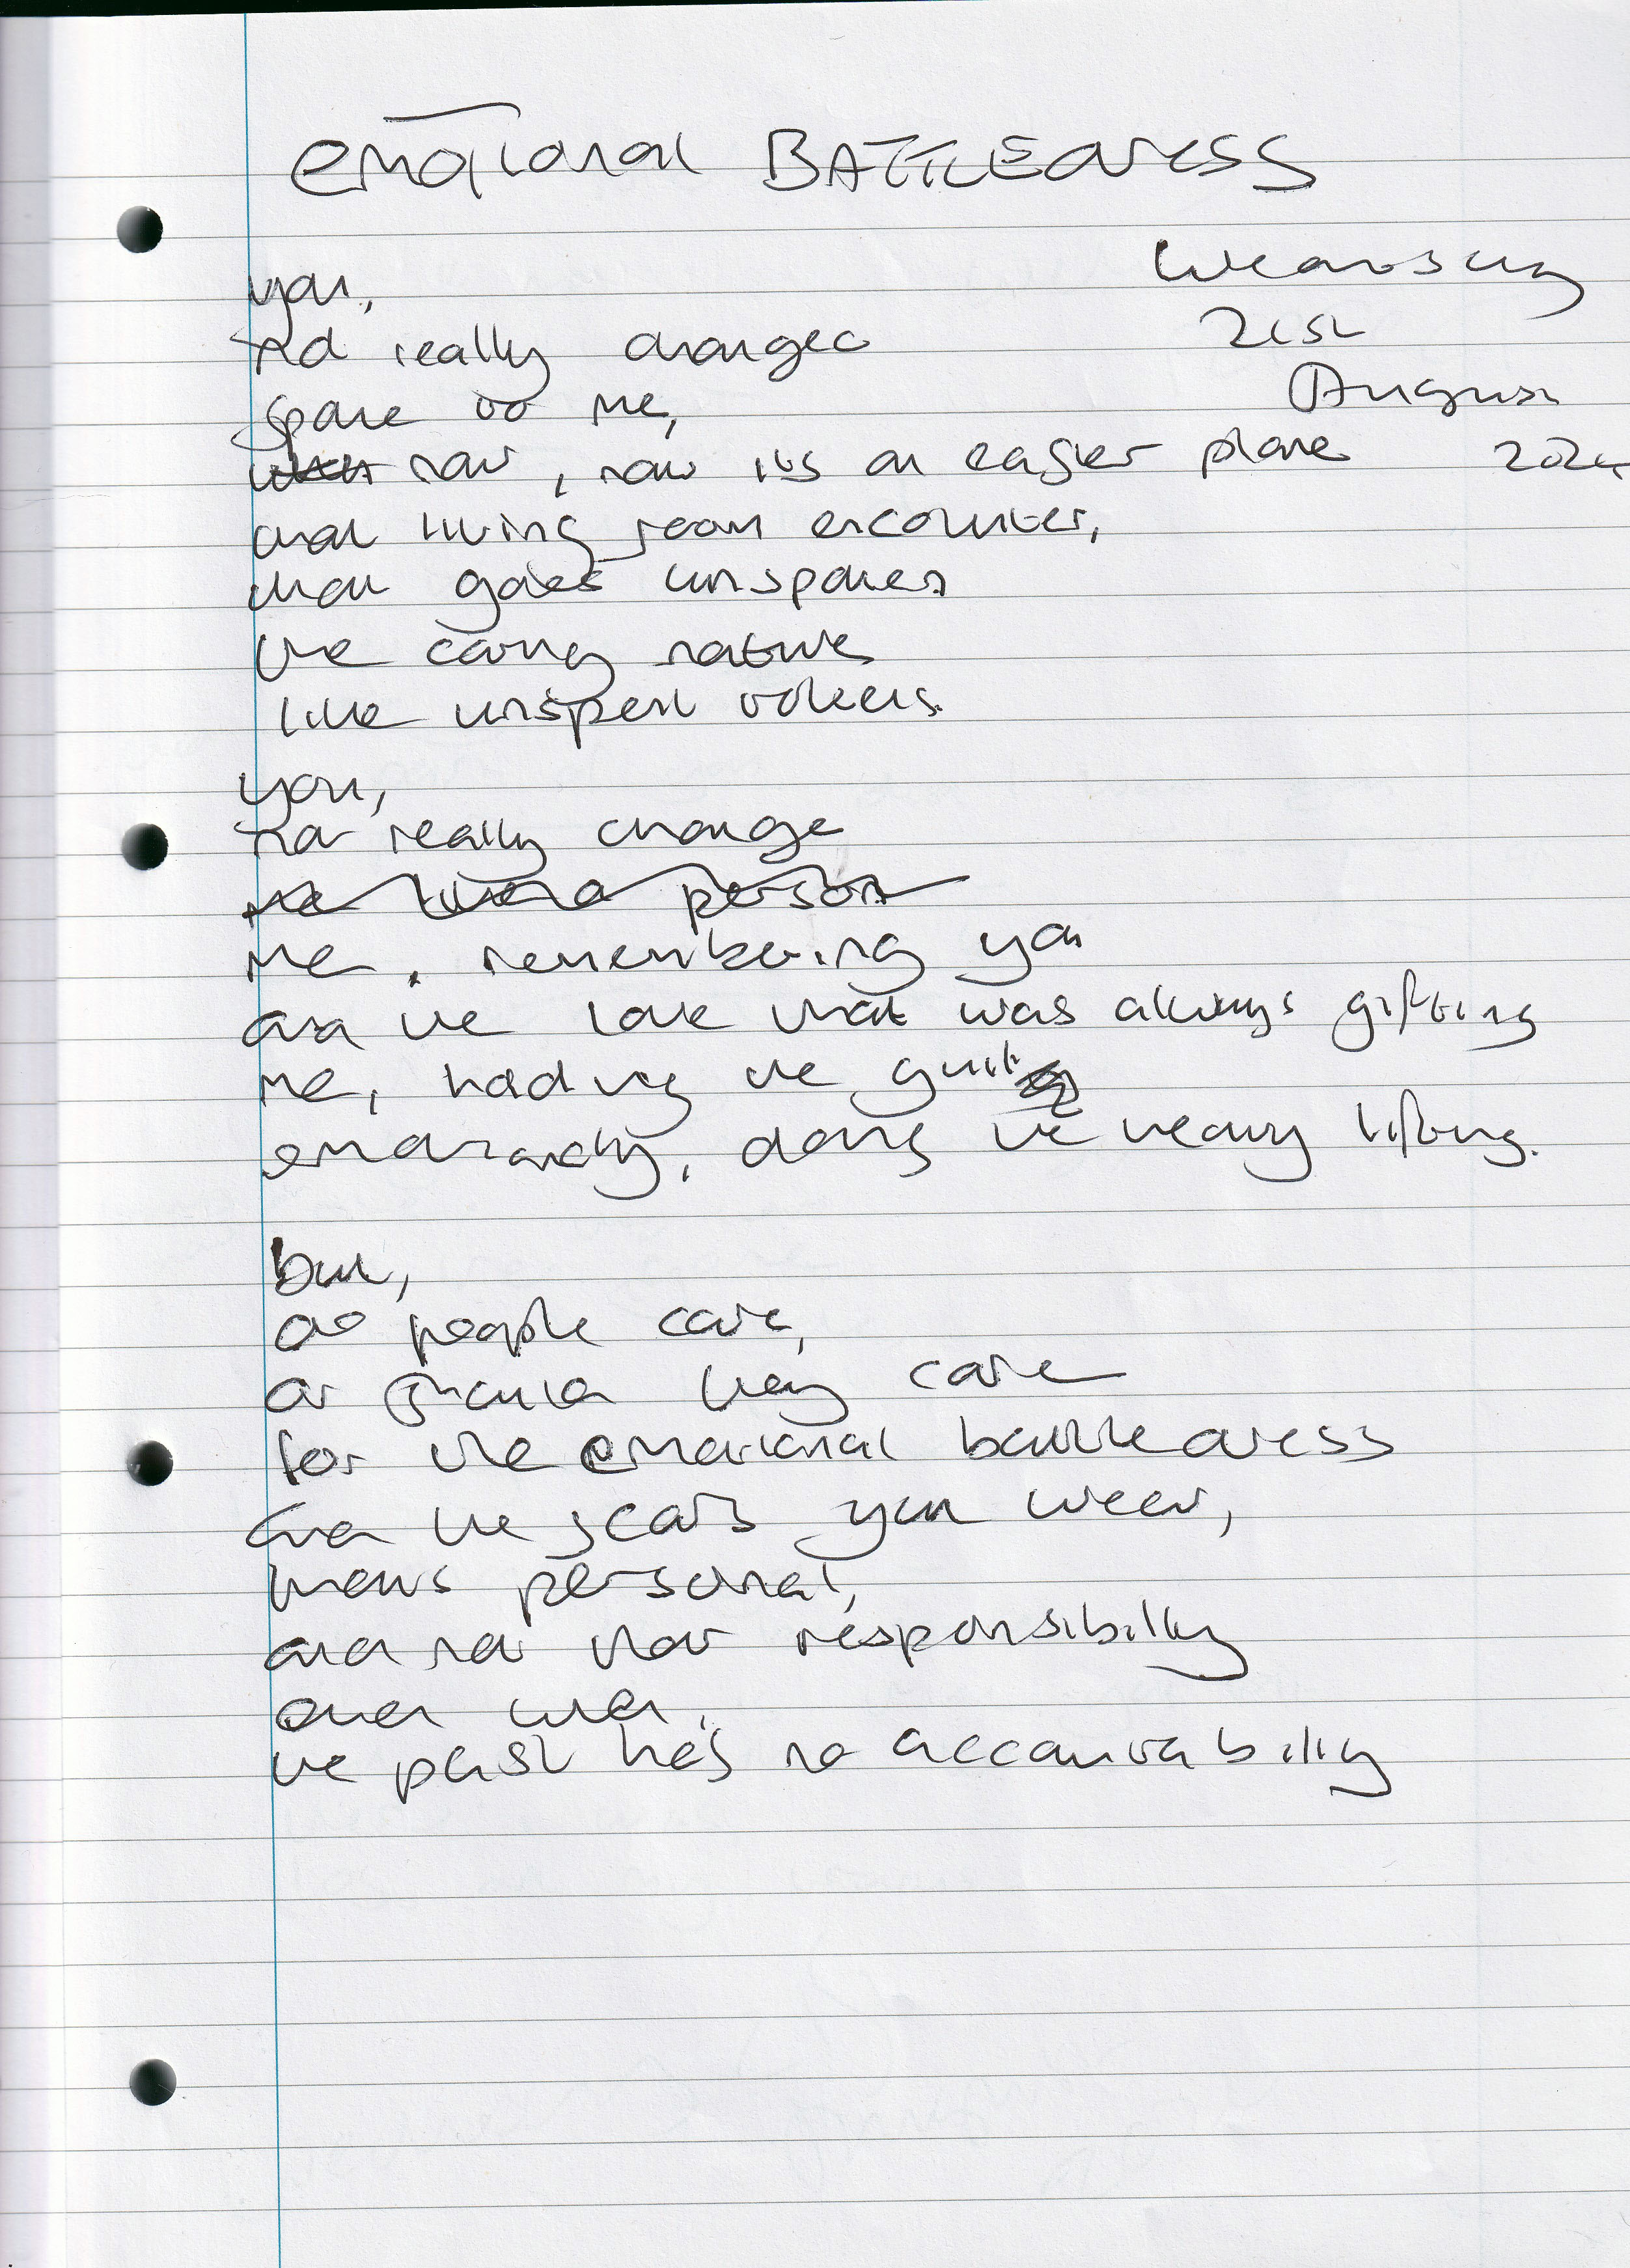 emotional BATTLEdress
Wednesday
21st
August
2024
you,
had really changed
spoke to me,
now, now its an easier place
that living room encounter,
that goes unspoken
we carry
like unspent tokens.
you,
had really change
me like a person
me, remembering you
and the love that was always gifting
me, holding the guilt
doing the heavy lifting.
but,
do people care,
or should they care
for the emotional battledress
and the scars you wear,
personal,
and not that responsibility
over when,
the past has no accountability